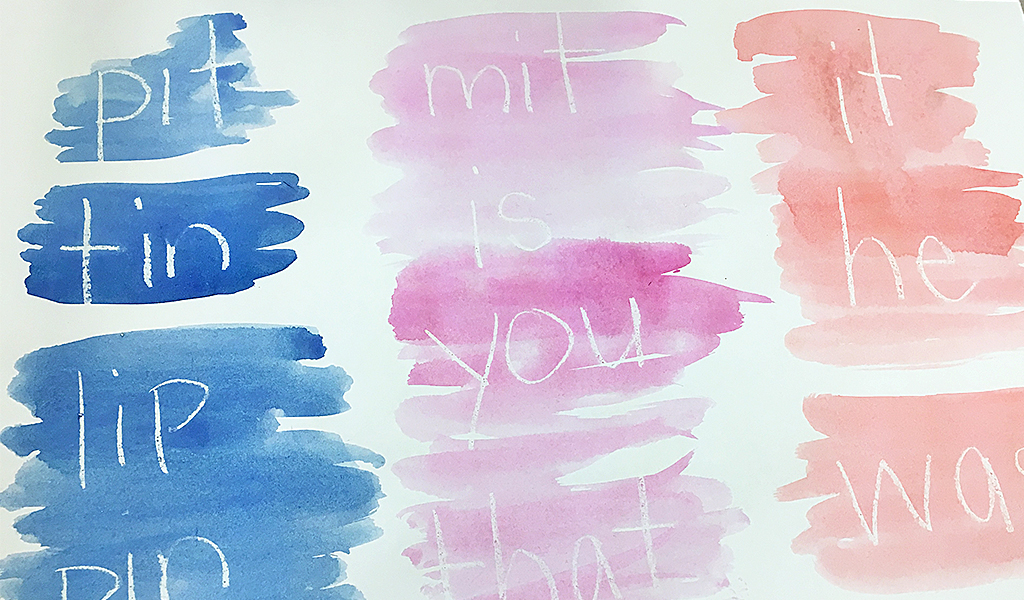 pit
tin
lip
pin
mit
is
you
that
it
he